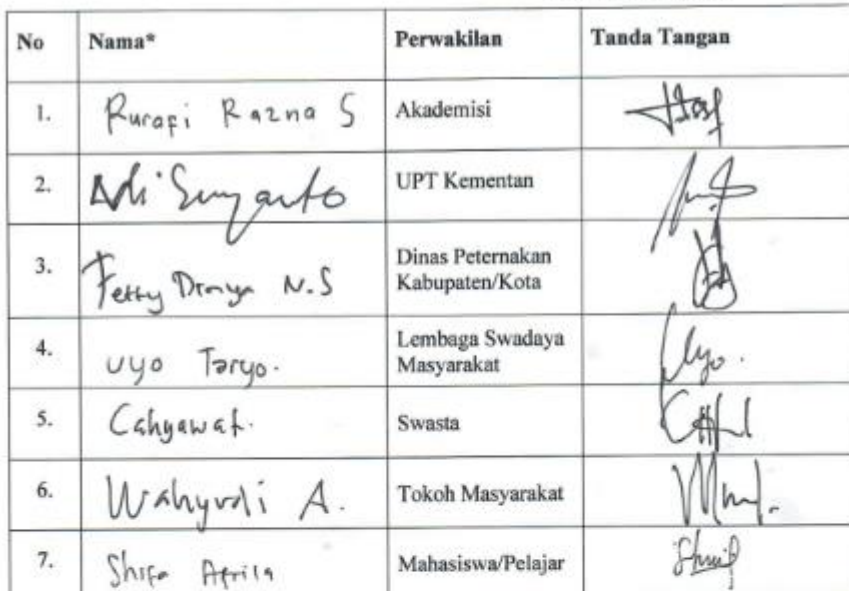 No Nama* Perwakilan Tanda Tangan
1. Rurafi Razna S Akademisi
2. Adi Sunyarto UPT Kementan
3. Fetty N.S Dinas Peternakan
Kabupaten/Kota
4. Uyo Taryo. Lembaga Swadaya
Masyarakat
5. Cahyawat. Swasta
6. Wahyudi A. Tokoh Masyarakat
7. Shifa Aprila Mahasiswa/Pelajar